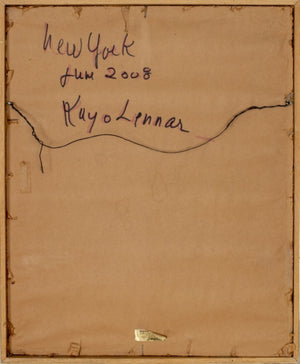 New York
Jun 2008
Kayo Lennar